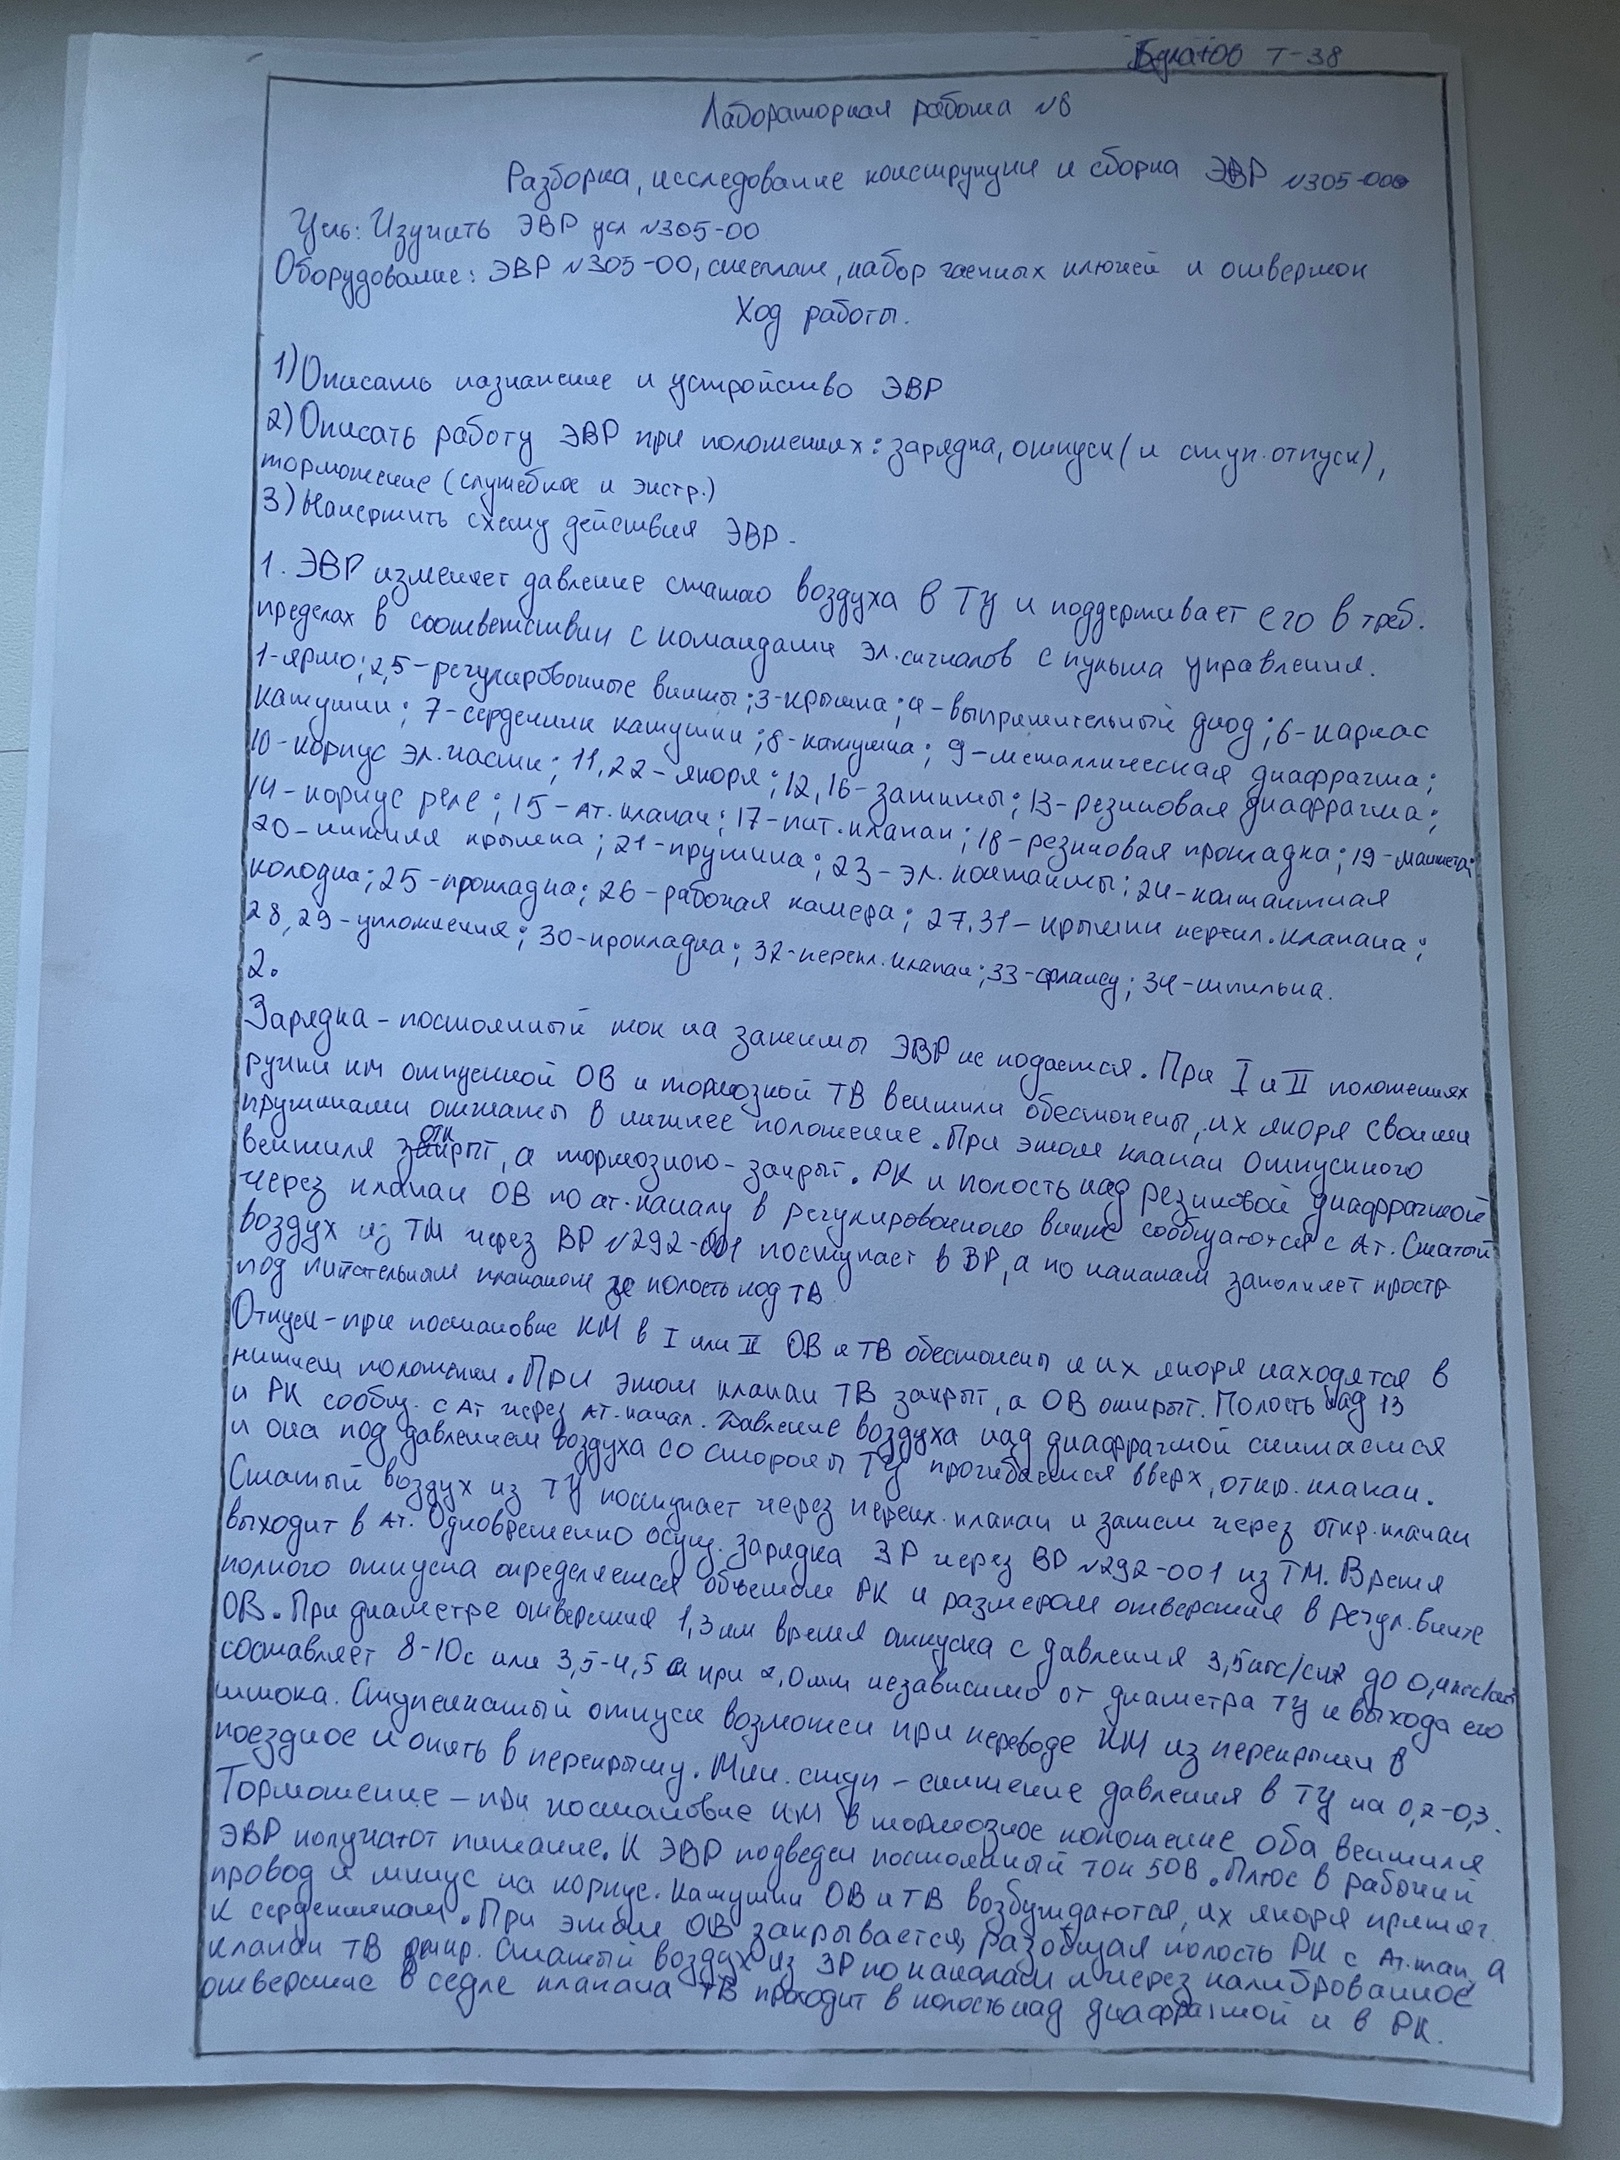 Булатов Т-38
Лабораторная работа №6
Разборка, исследование конструкции и сборка ЭВР №305-000
Цель: Изучить ЭВР усл №305-00
Оборудование: ЭВР №305-00, стеллаж, набор гаечных ключей и отверток
Ход работы.
1) Описать назначение и устройство ЭВР
2) Описать работу ЭВР при положениях: зарядка, отпуск (и ступ. отпуск),
торможение (служебное и экстр.)
3) Начертить схему действия ЭВР.
1. ЭВР изменяет давление сжатого воздуха в ТЦ и поддерживает его в треб.
пределах в соответствии с командами эл. сигналов с пульта управления.
1-ярмо; 2,5-регулировочные винты; 3-крышка; 4-выпрямительный диод; 6-каркас
катушки; 7-сердечник катушки; 8-катушка; 9-металлическая диафрагма;
10-корпус эл. части; 11,22-якоря; 12,16-зажимы; 13-резиновая диафрагма;
14-корпус реле; 15-Ат. клапан; 17-пит. клапан; 18-резиновая прокладка; 19-манжета;
20-нижняя крышка; 21-пружина; 23-эл. контакты; 24-контактная
колодка; 25-прокладка; 26-рабочая камера; 27,31-крышки перекл. клапана;
28,29-уплотнения; 30-прокладка; 32-перекл. клапан; 33-фланец; 34-шпилька.
2.
Зарядка - постоянный ток на зажимы ЭВР не подается. При I и II положениях
ручки КМ отпускной ОВ и тормозной ТВ вентили обесточены, их якоря своими
пружинами отжаты в нижнее положение. При этом клапан отпускного
вентиля открыт, а тормозного - закрыт. РК и полость над резиновой диафрагмой
через клапан ОВ по ат. каналу в регулировочном винте сообщаются с Ат. Сжатый
воздух из ТМ через ВР №292-001 поступает в ВР, а по каналам заполняет простр
под питательным клапаном и полость под ТВ
Отпуск - при постановке КМ в I или II ОВ и ТВ обесточены и их якоря находятся в
нижнем положении. При этом клапан ТВ закрыт, а ОВ открыт. Полость над 13
и РК сообщ. с Ат через Ат. канал. Давление воздуха над диафрагмой снижается
и она под давлением воздуха со стороны ТЦ прогибается вверх, откр. клапан.
Сжатый воздух из ТЦ поступает через перекл. клапан и затем через откр. клапан
выходит в Ат. Одновременно осущ. зарядка ЗР через ВР №292-001 из ТМ. Время
полного отпуска определяется объемом РК и размером отверстия в регул. винте
ОВ. При диаметре отверстия 1,3 мм время отпуска с давления 3,5 кгс/см2 до 0,4 кгс/см2
составляет 8-10с или 3,5-4,5 при 2,0 мм независимо от диаметра ТЦ и выхода его
штока. Ступенчатый отпуск возможен при переводе КМ из перекрыши в
поездное и опять в перекрышу. Мин. ступ - снижение давления в ТЦ на 0,2-0,3.
Торможение - при постановке КМ в тормозное положение оба вентиля
ЭВР получают питание. К ЭВР подведен постоянный ток 50В. Плюс в рабочий
провод и минус на корпус. Катушки ОВ и ТВ возбуждаются, их якоря притяг.
к сердечникам. При этом ОВ закрывается, разобщая полость РК с Ат. кан, а
клапан ТВ откр. Сжатый воздух из ЗР по каналам и через калиброванное
отверстие в седле клапана ТВ проходит в полость над диафрагмой и в РК.